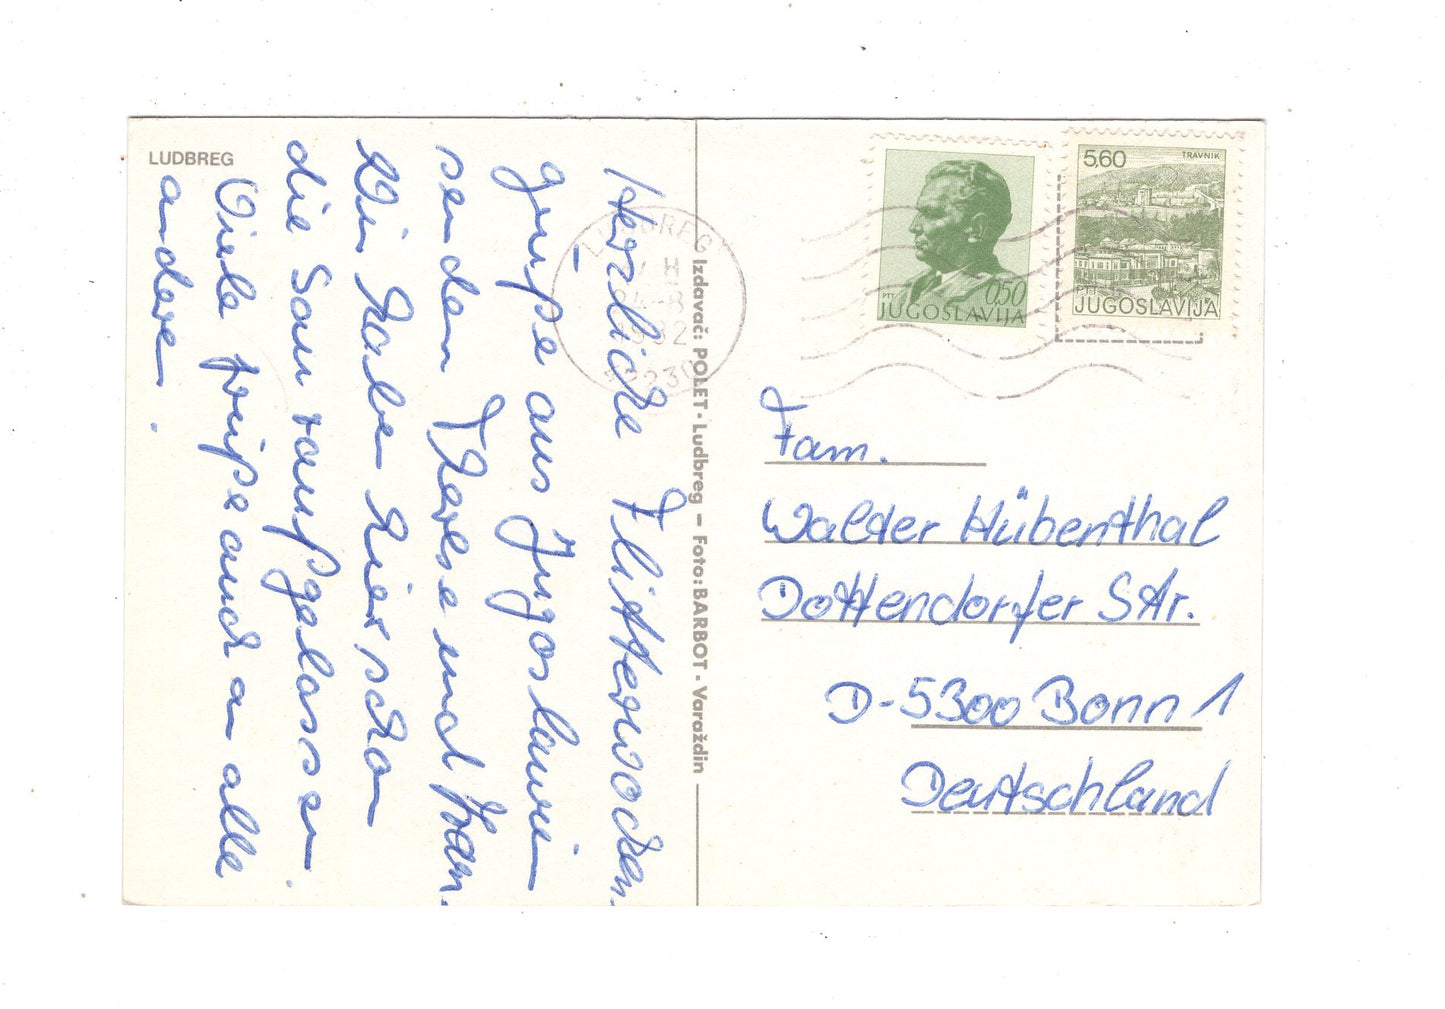 LUDBREG
Herzliche Flitterwochen
grüße aus Jugoslawien
senden Therese und
Wir haben hier schon
die Sau rausgelassen.
Viele Grüße auch an alle
andere.
Izdavač: POLET · Ludbreg — Foto: BARBOT · Varaždin
LUDBREG
0,50
PTT
JUGOSLAVIJA
5,60
TRAVNIK
PTT
JUGOSLAVIJA
Fam.
Walter Hübenthal
Dottendorfer Str.
D-5300 Bonn 1
Deutschland